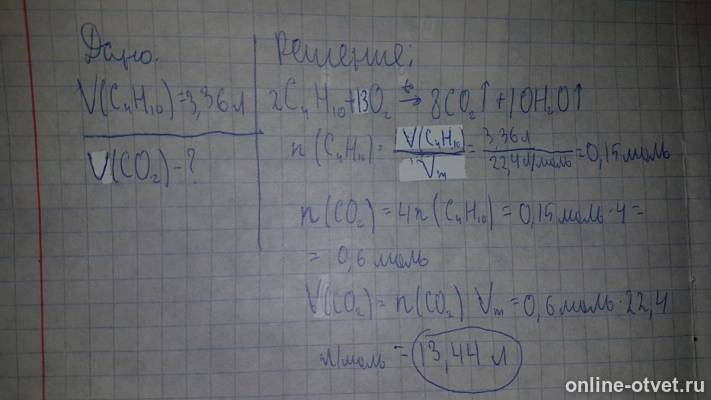 Дано:
V(C₄H₁₀)=3,36л
V(CO₂)-?
Решение:
2C₄H₁₀+13O₂ →ᵗ 8CO₂↑+10H₂O↑
n(C₄H₁₀)= V(C₄H₁₀)/Vₘ = 3,36л/22,4л/моль =0,15моль
n(CO₂)=4n(C₄H₁₀)=0,15моль·4=
= 0,6моль
V(CO₂)=n(CO₂) Vₘ=0,6моль·22,4
л/моль = 13,44 л
online-otvet.ru